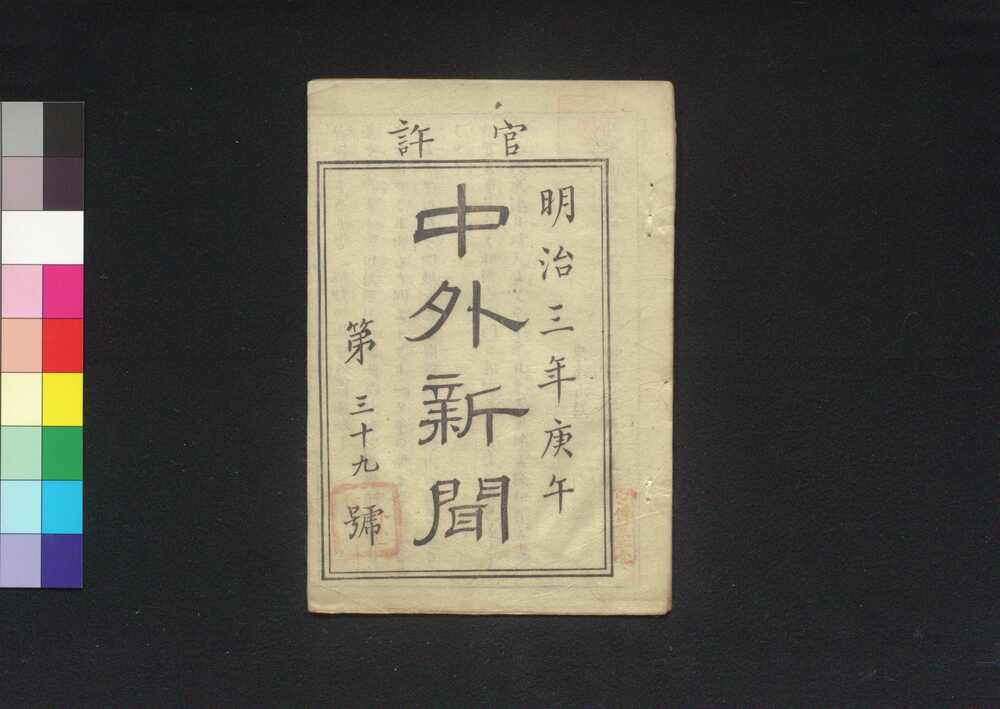 官許
明治三年庚午
中外新聞
第三十九號